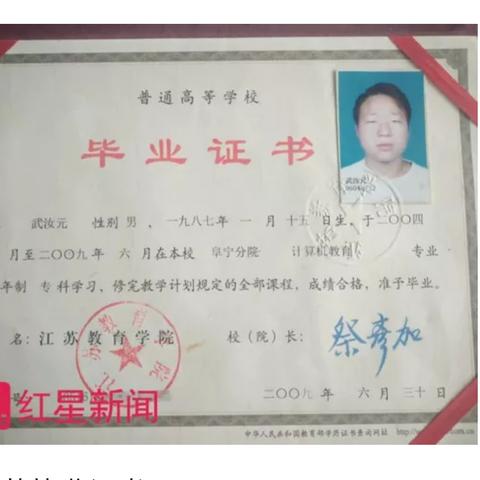 普通高等学校
毕业证书
武汝元 性别 男、一九八七年 一 月 十五 日生、于二〇〇四
月至二〇〇九年 六 月在本校 阜宁分院 计算机教育 专业
年制 专 科学习、修完教学计划规定的全部课程，成绩合格，准予毕业。
名：江苏教育学院 校（院）长：
二〇〇九 年 六 月 三十 日
红星新闻
中华人民共和国教育部学历证书查询网址
武汝元
江苏教育学院